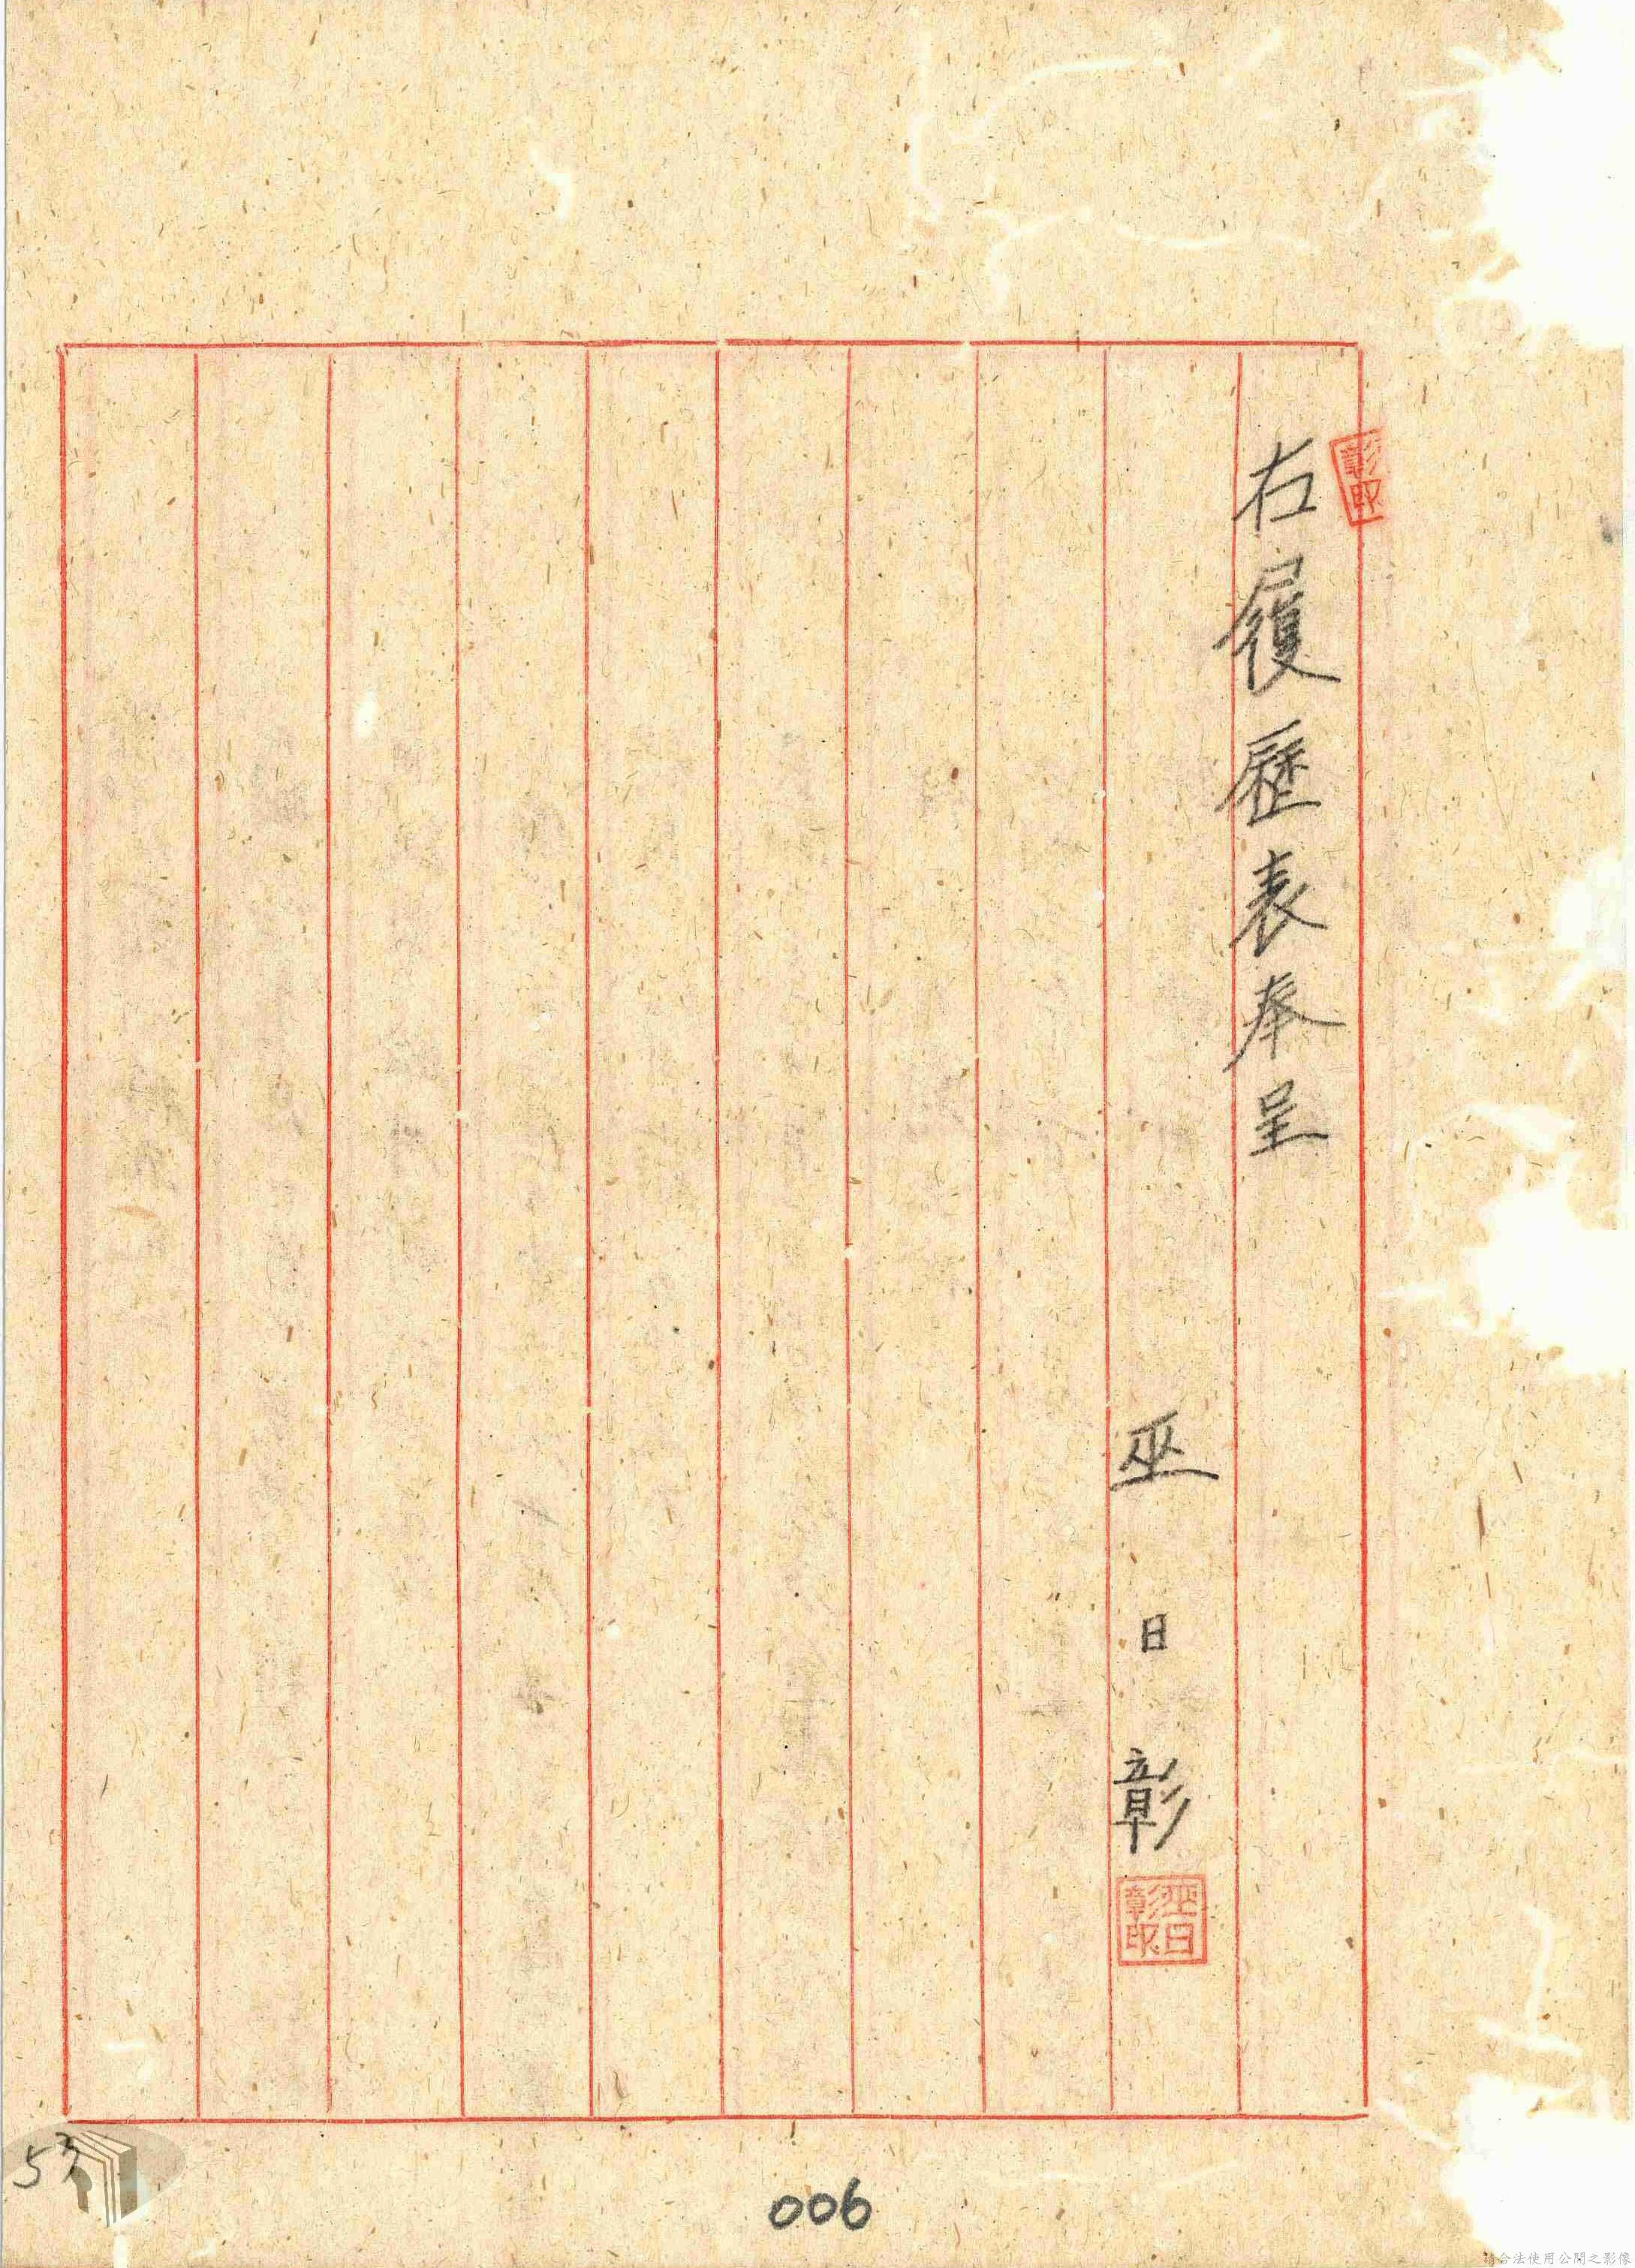 右履歷表奉呈
彰印
巫日彰
巫日彰印
53
006
請合法使用公開之影像